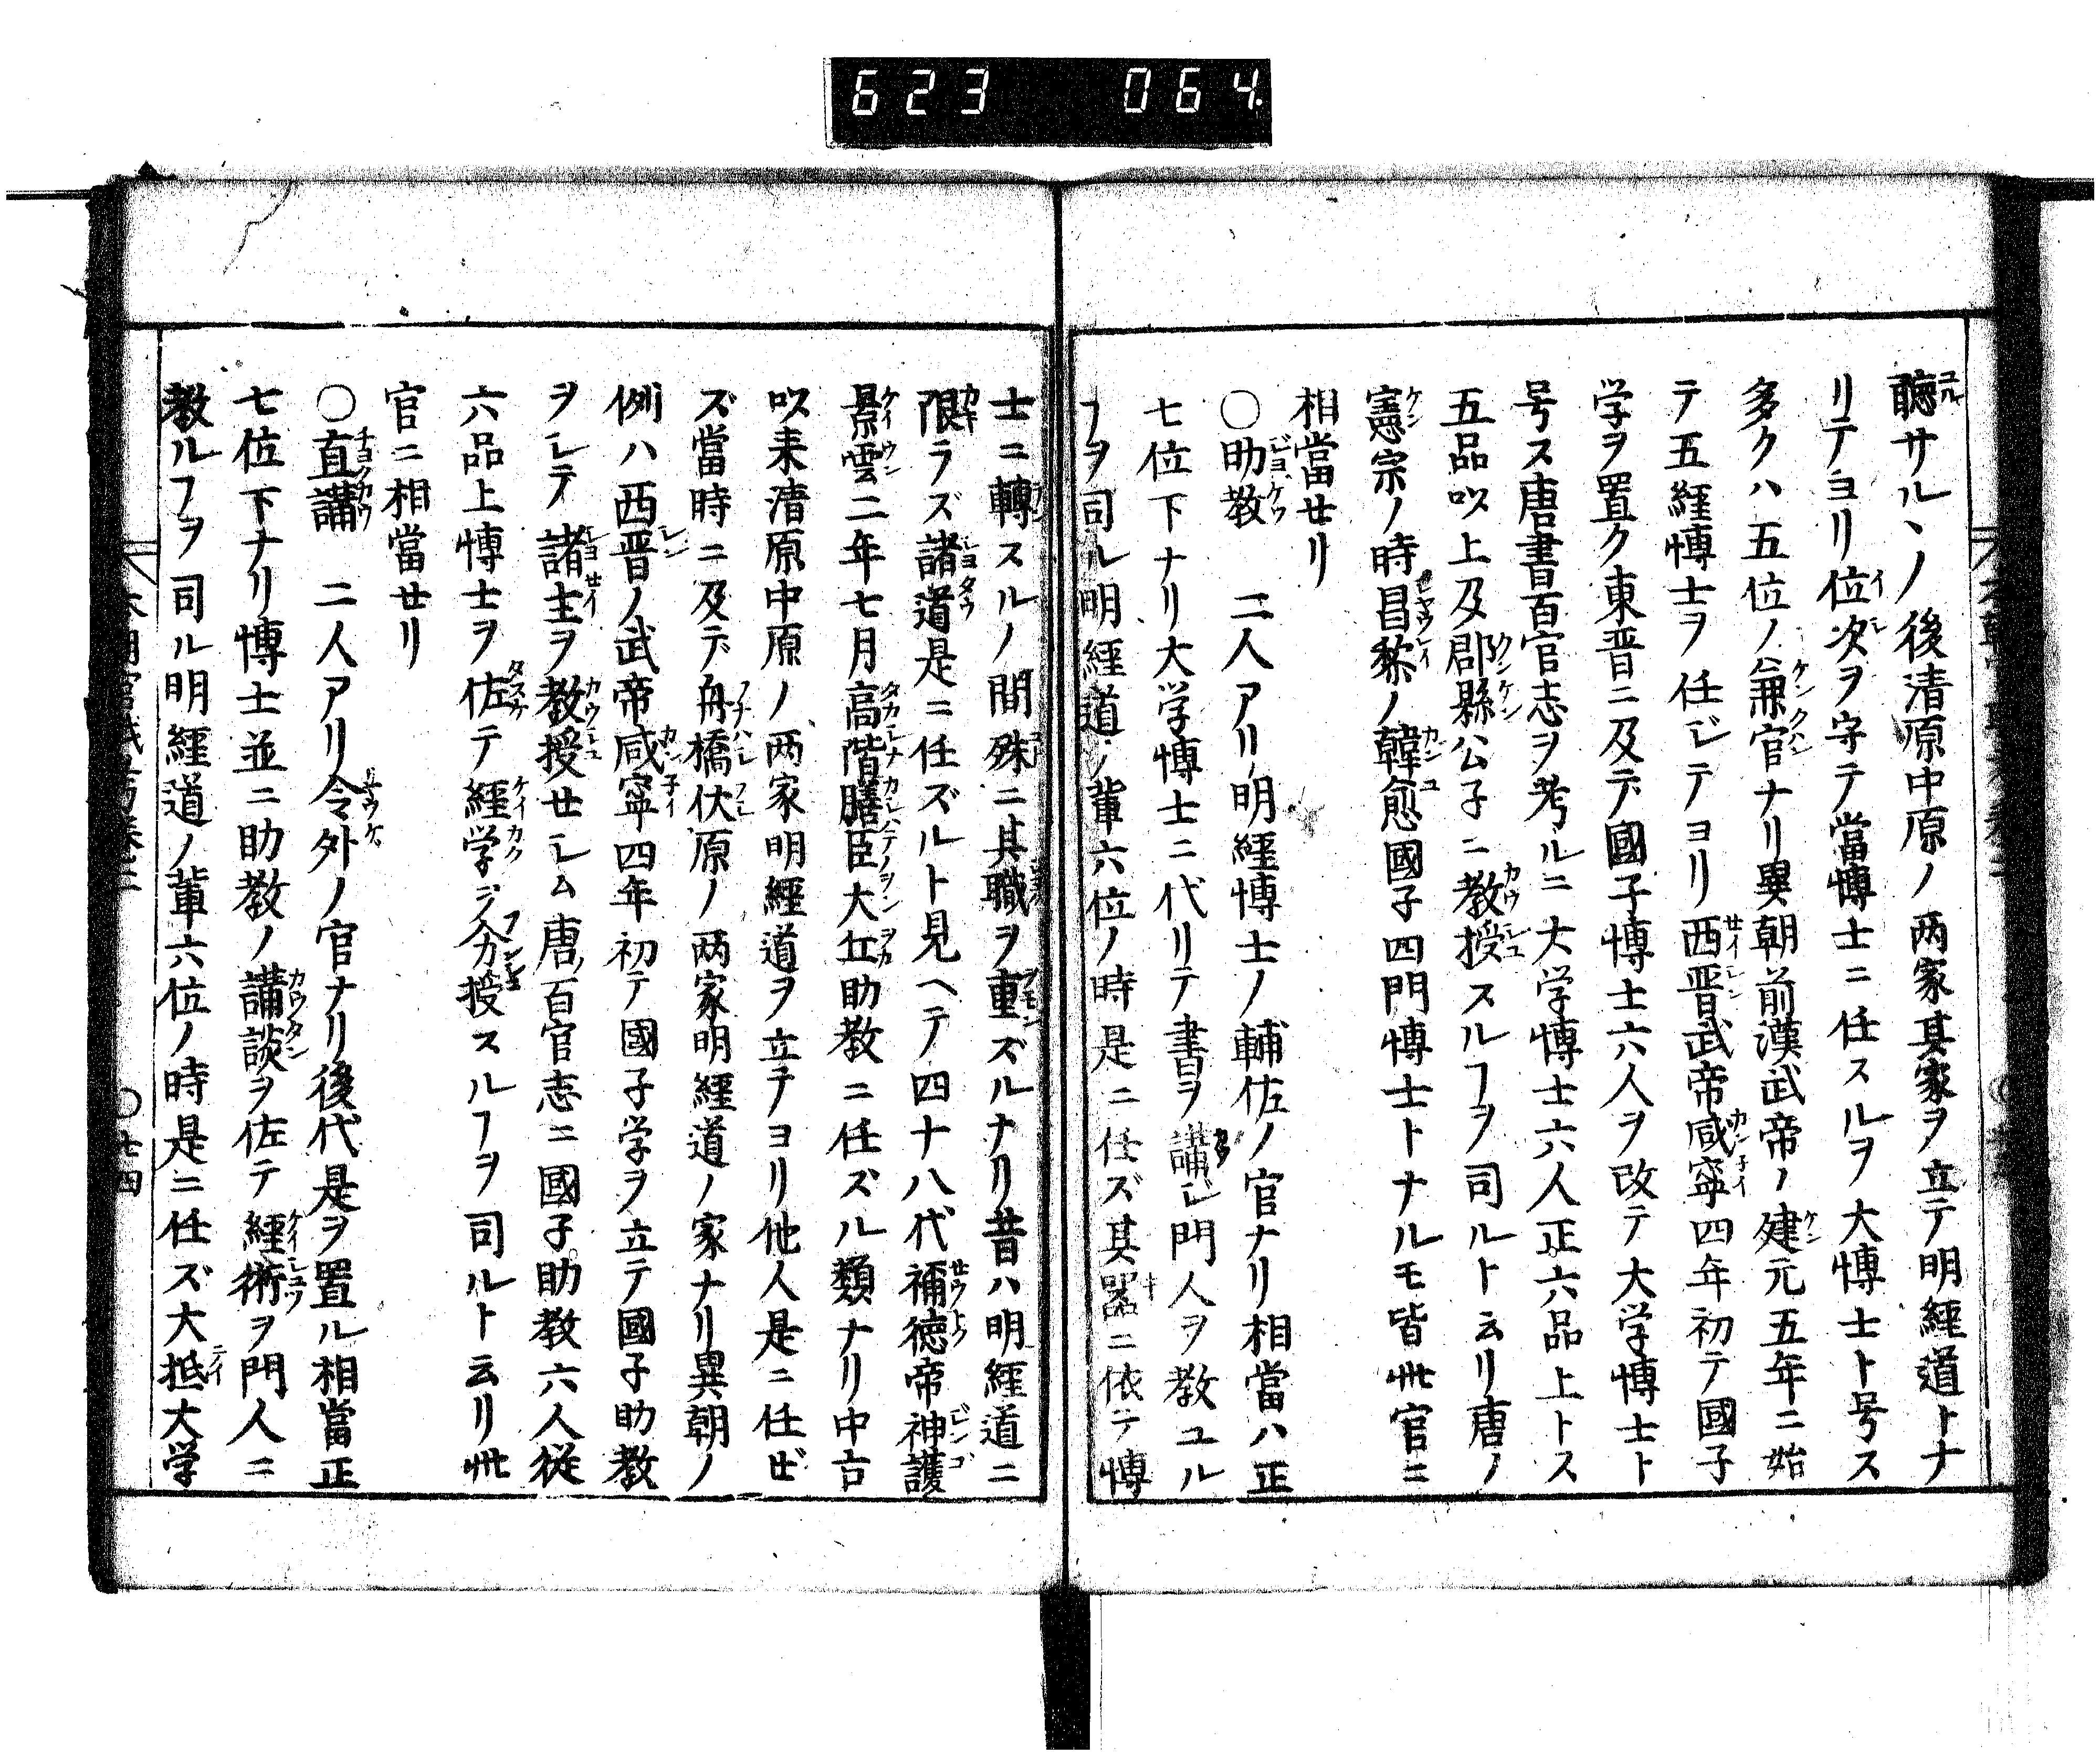 623 064
聴サル丶ノ後清原中原ノ両家其家ヲ立テ明經道トナ
リテヨリ位次ヲ守テ當博士ニ任スルヲ大博士ト号ス
多クハ五位ノ兼官ナリ異朝前漢武帝ノ建元五年ニ始
テ五經博士ヲ任レテヨリ西晋武帝咸寧四年初テ國子
学ヲ置ク東晋ニ及デ國子博士六人ヲ改テ大学博士ト
号ス唐書百官志ヲ考ルニ大学博士六人正六品上トス
五品以上及郡縣公子ニ教授スルヿヲ司ルト云リ唐ノ
憲宗ノ時昌黎ノ韓愈國子四門博士トナルモ皆此官ニ
相當せリ
〇助教 二人アリ明經博士ノ輔佐ノ官ナリ相當ハ正
七位下ナリ大学博士ニ代リテ書ヲ講レ門人ヲ教ユル
ヿヲ司ル明經道ノ輩六位ノ時是ニ任ズ其器ニ依テ博
士ニ轉スルノ間殊ニ其職ヲ重ズルナリ昔ハ明經道ニ
限ラズ諸道是ニ任ズルト見ヘテ四十八代称徳帝神護
景雲二年七月高階膳臣大丘助教ニ任ズル類ナリ中古
以来清原中原ノ両家明經道ヲ立テヨリ他人是ニ任ぜ
ズ當時ニ及デ舟橋伏原ノ両家明經道ノ家ナリ異朝ノ
例ハ西晋ノ武帝咸寧四年初テ國子学ヲ立テ國子助教
ヲレテ諸生ヲ教授せレム唐ノ百官志ニ國子助教六人従
六品上博士ヲ佐テ經学ヲ分授スルヿヲ司ルト云リ此
官ニ相當せリ
〇直講 二人アリ令外ノ官ナリ後代是ヲ置ル相當正
七位下ナリ博士並ニ助教ノ講談ヲ佐テ經術ヲ門人ニ
教ルヿヲ司ル明經道ノ輩六位ノ時是ニ任ズ大抵大学
〇廿四